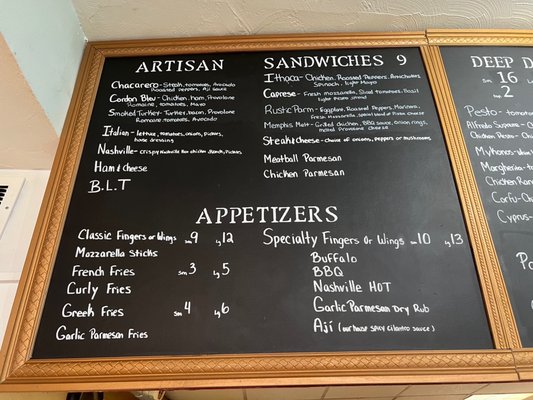 ARTISAN SANDWICHES 9
Chacarero- Steak, tomatoes, Avocado
Roasted Red Peppers, Aji sauce
Cordon Bleu- Chicken, Ham, Provolone
Romaine, tomatoes, Mayo
Smoked Turkey- Turkey, Bacon, Provolone
Romaine tomatoes, Avocado
Italian- lettuce, tomatoes, onions, Pickles,
house dressing
Nashville- crispy Nashville Hot chicken Slaw, Pickles
Ham & cheese
B.L.T
Ithaca- Chicken, Roasted Peppers, Artichokes
Spinach, light Mayo
Caprese- Fresh mozzarella, Sliced tomatoes, Basil
light Pesto spread
Rustic Parm- Eggplant, Roasted Peppers, Marinara
Fresh Mozzarella, Pesto Cheese
Memphis Melt- Grilled chicken, BBQ sauce, onion rings,
melted Provolone Cheese
Steak & cheese- choice of onions, peppers or mushrooms
Meatball Parmesan
Chicken Parmesan
APPETIZERS
Classic Fingers or Wings sm 9 lg 12
Mozzarella Sticks
French Fries sm 3 lg 5
Curly Fries
Greek Fries sm 4 lg 6
Garlic Parmesan Fries
Specialty Fingers or Wings sm 10 lg 13
Buffalo
BBQ
Nashville HOT
Garlic Parmesan Dry Rub
Ají (our house spicy cilantro sauce)
DEEP D
sm 16
No. 2
Pesto- tom
Alfredo Supreme- C
Chicken Pecan- Ch
Mykonos-
Margherita-
Chicken Ranch
Corfu- Chic
Cyprus-